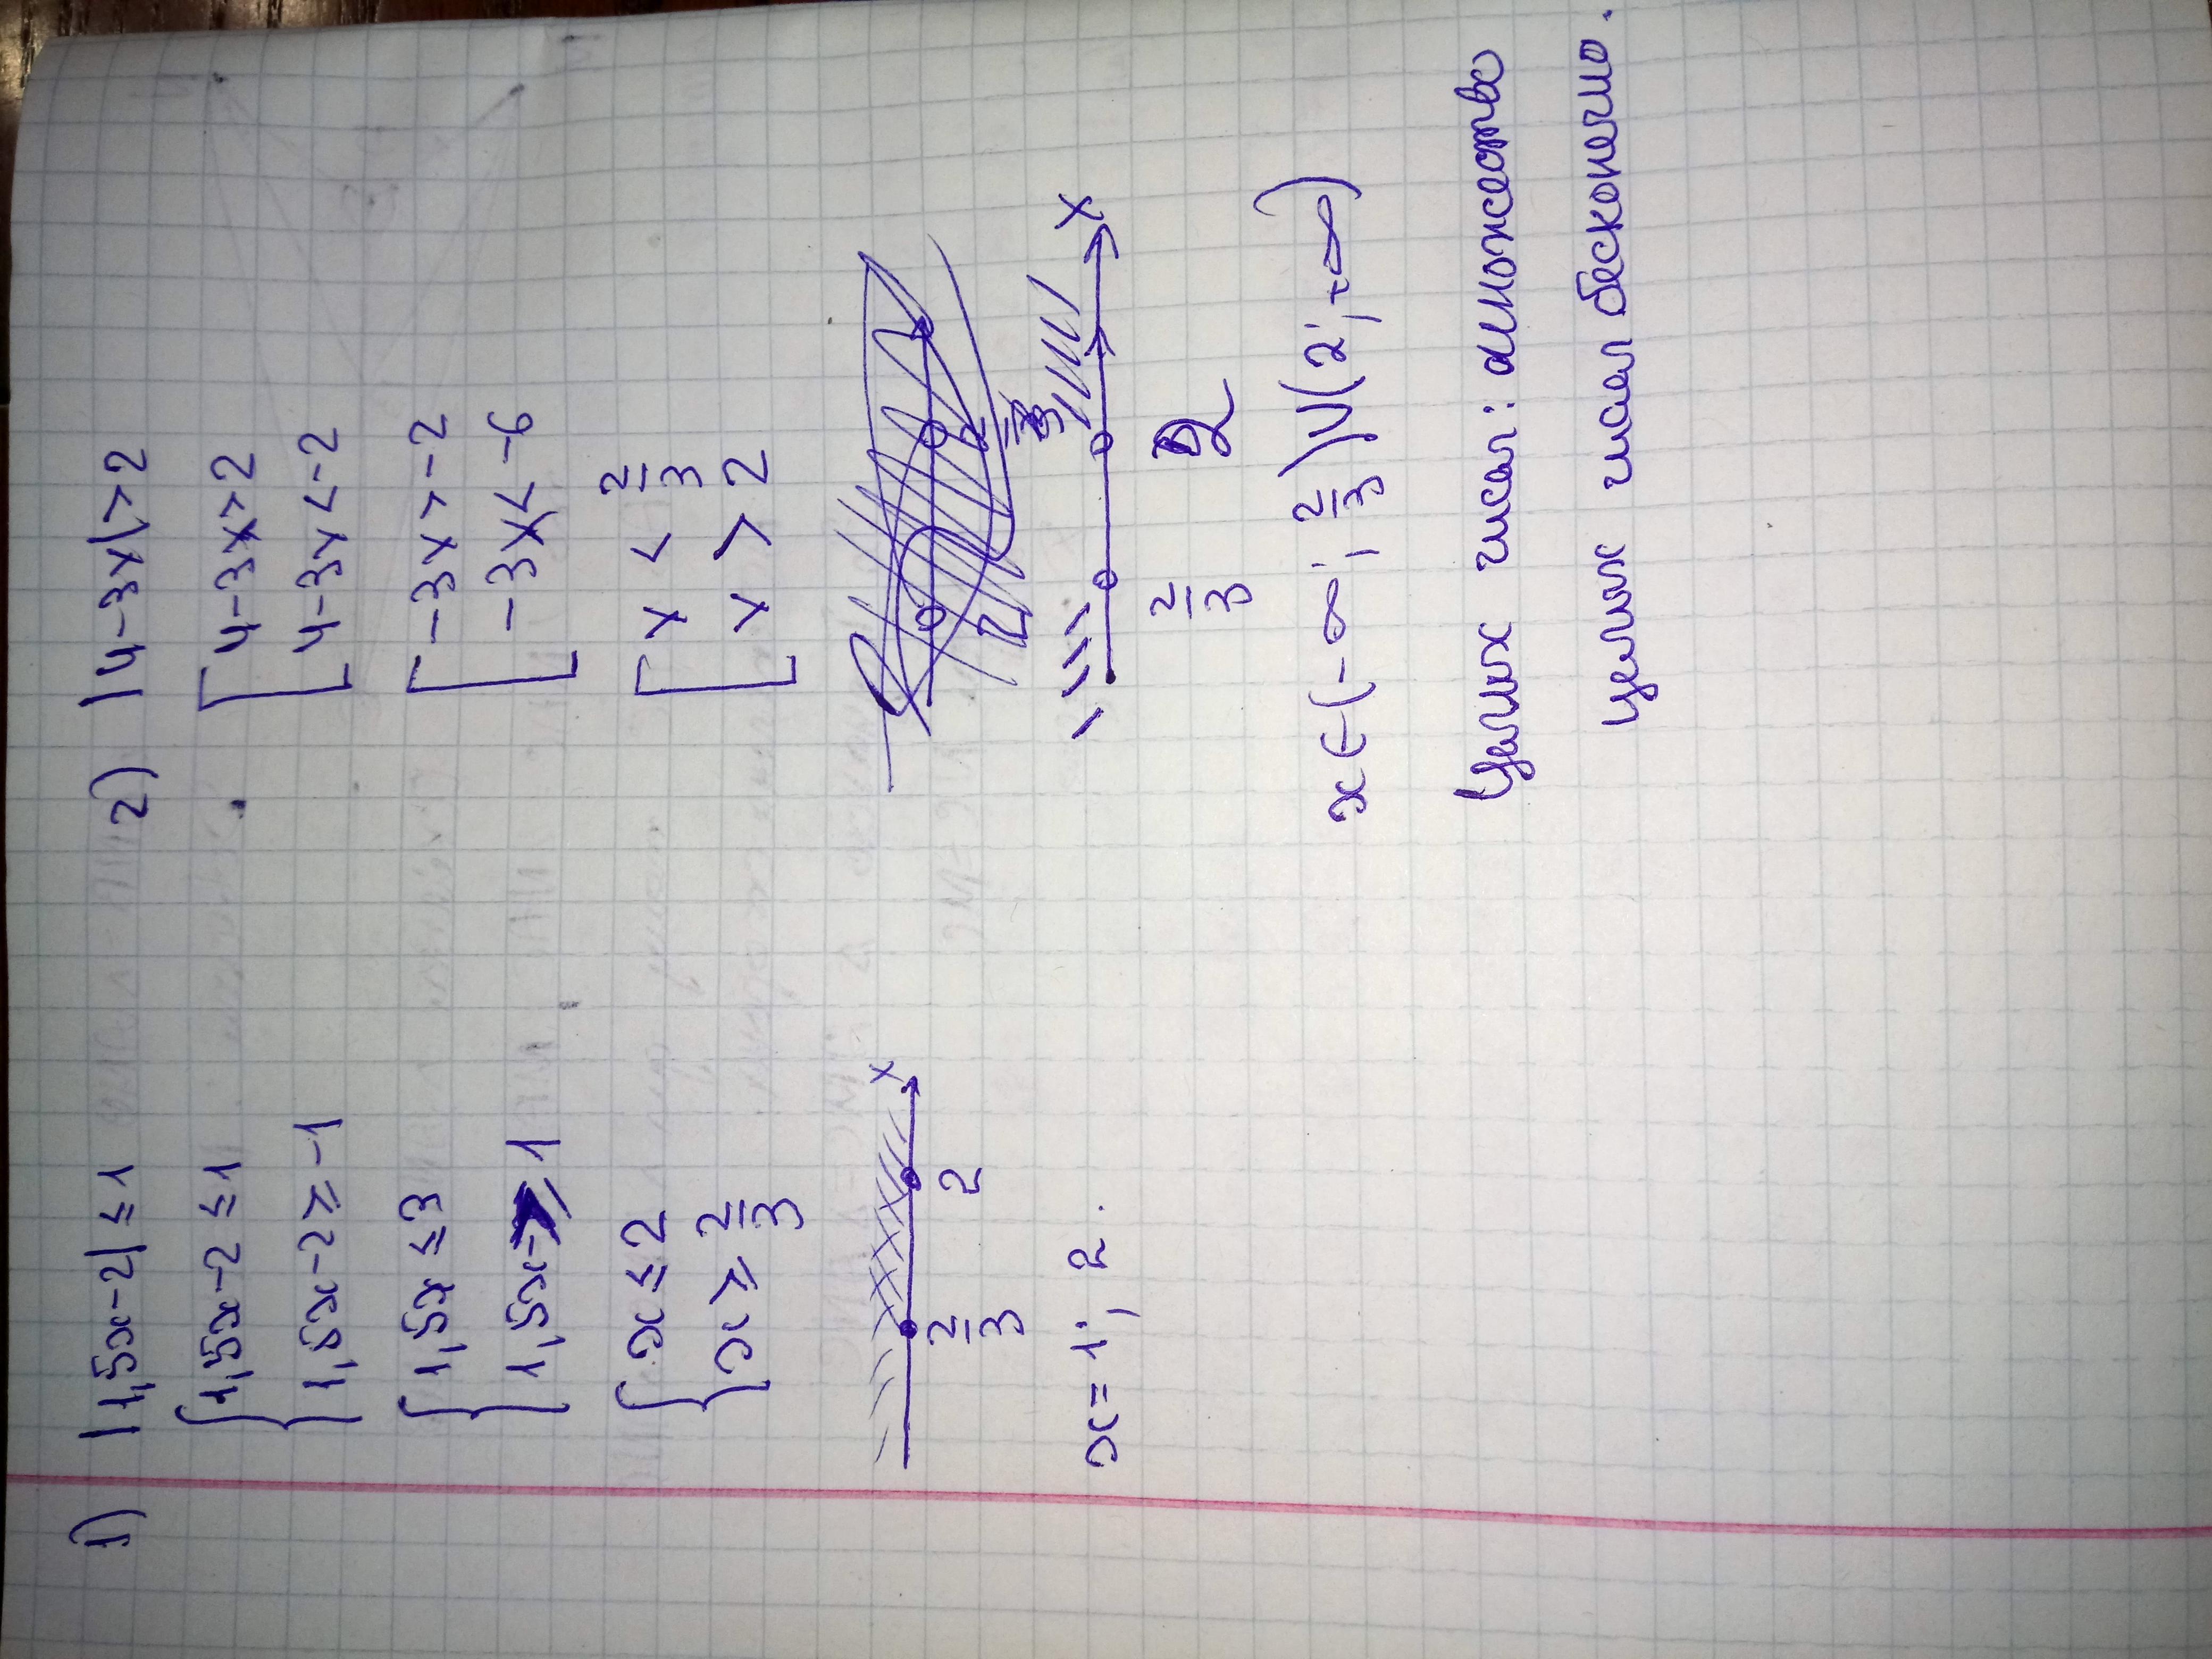 1) |1,5x-2| ≤ 1
1,5x-2 ≤ 1
1,5x-2 ≥ -1
1,5x ≤ 3
1,5x ≥ 1
x ≤ 2
x ≥ 2/3
x
2/3 2
x=1; 2.
2) |4-3x|>2
4-3x>2
4-3x<-2
-3x>-2
-3x<-6
x < 2/3
x > 2
x
2/3 2
x∈(-∞; 2/3)∪(2; +∞)
Целых чисел: множество
целых чисел бесконечно.